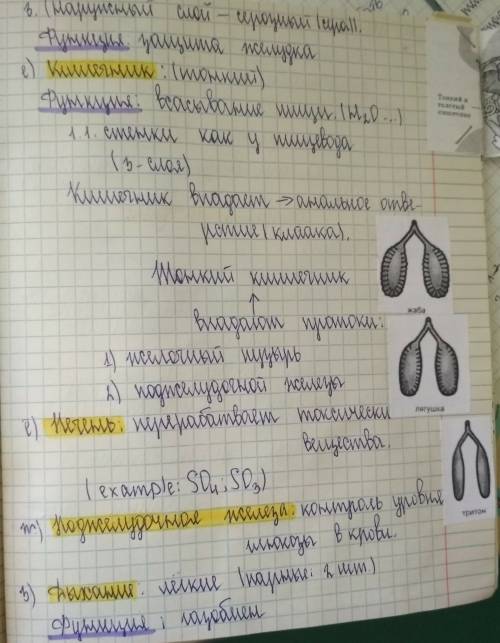 в. (наружный слой – серозный (сера)).
Функция: защита желудка
е) Кишечник: (тонкий)
Функция: всасывание пищи. (H₂O...)
1.1. стенки как у пищевода
(3-слоя)
Кишечник впадает → анальное отве-
рстие (клоака).
Тонкий кишечник
↑
впадают протоки:
1) желочный пузырь
2) поджелудочной железы
ё) Печень: перерабатвает токсически
вещества.
(example: SO₄; SO₃)
ж) Поджелудочная железа: контроль уровня
глюкозы в крови.
з) Дыхание: лёгкие (парные: 2 шт)
Функция: газобмен
Тонкий и
толстый
кишечник
жаба
лягушка
тритон